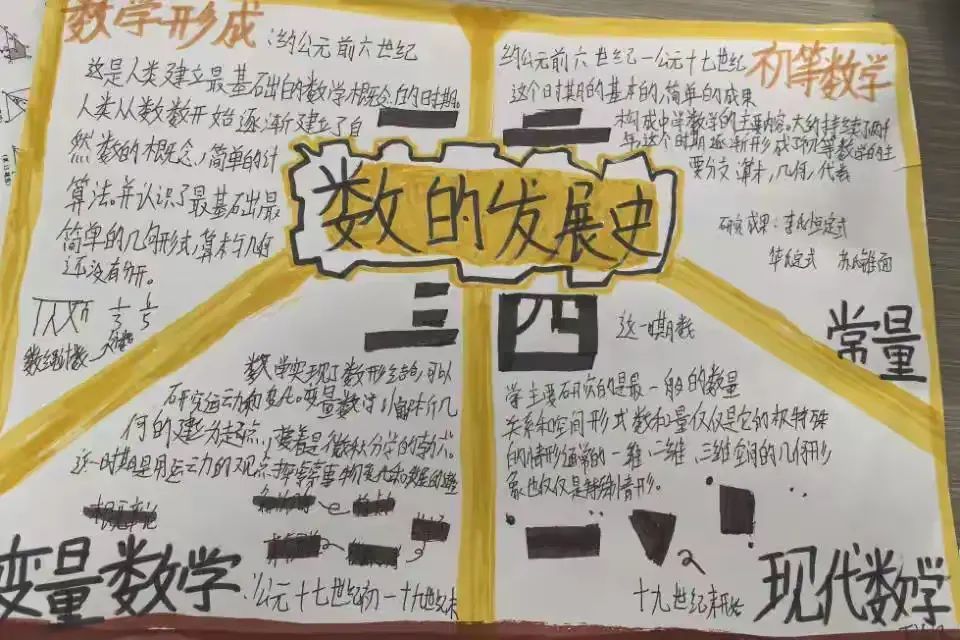 数的发展史
数学形成:约公元前六世纪
这是人类建立最基础的数学概念的时期。
人类从数数开始逐渐建立了自
然数的概念,简单的计
算法。并认识了最基础最
简单的几何形式,算术与几何
还没有分开。
1/3 1/5
二
约公元前六世纪—公元十七世纪
初等数学
这个时期的基本的,简单的成果
构成中学数学的主要内容。大约持续了两千
年,这个时期逐渐形成了初等数学的主
要分支:算术,几何,代数
研究成果:李氏恒定式
华氏定式
常量
三
数学实现了数形结合,可以
研究运动和变化的变量数
何的建为起点,
这一时期是用运动的观点
变量数学
:公元十七世纪初—十九世纪末
四
这一时期数
学主要研究的是最一般的数量
关系和空间形式数和量仅仅是它的极特殊
的情形通常的一维、二维、三维空间的几何形
象也仅仅是特殊情形。
十九世纪末开始
现代数学